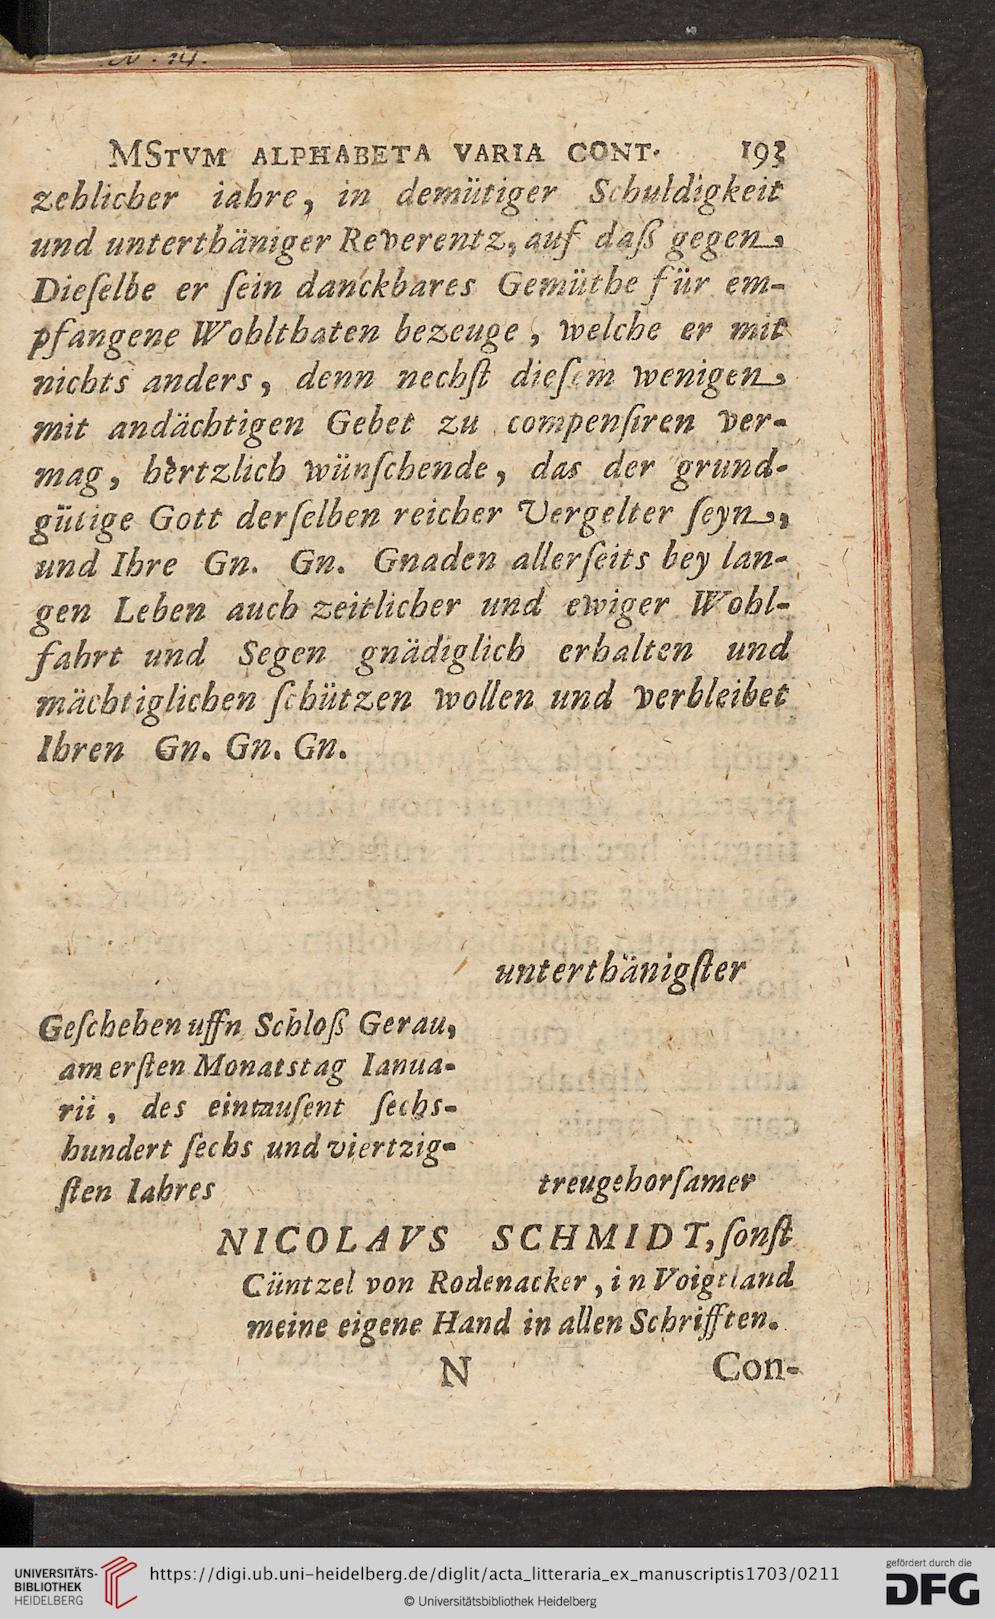 MSTVM ALPHABETA VARIA CONT. 193
zehlicher iahre, in demütiger Schuldigkeit
und unterthäniger Reverentz, auf daß gegen,
Dieſelbe er ſein danckbares Gemüthe für em-
pfangene Wohlthaten bezeuge, welche er mit
nichts anders, denn nechſt dieſem wenigen,
mit andächtigen Gebet zu compenſiren ver-
mag, hertzlich wünſchende, das der grund-
gütige Gott derſelben reicher Vergelter ſeyn,
und Ihre Gn. Gn. Gnaden allerſeits bey lan-
gen Leben auch zeitlicher und ewiger Wohl-
fahrt und Segen gnädiglich erhalten und
mächtiglichen ſchützen wollen und verbleibet
Ihren Gn. Gn. Gn.
unterthänigſter
Geſchehen uffn Schloß Gerau,
am erſten Monatstag Ianua-
rii, des eintauſent ſechs-
hundert ſechs und viertzig-
ſten Iahres
treugehorſamer
NICOLAVS SCHMIDT, ſonſt
Cüntzel von Rodenacker, in Voigtland
meine eigene Hand in allen Schrifften.
N Con-
UNIVERSITÄTS-
BIBLIOTHEK
HEIDELBERG
https://digi.ub.uni-heidelberg.de/diglit/acta_litteraria_ex_manuscriptis1703/0211
© Universitätsbibliothek Heidelberg
gefördert durch die
DFG